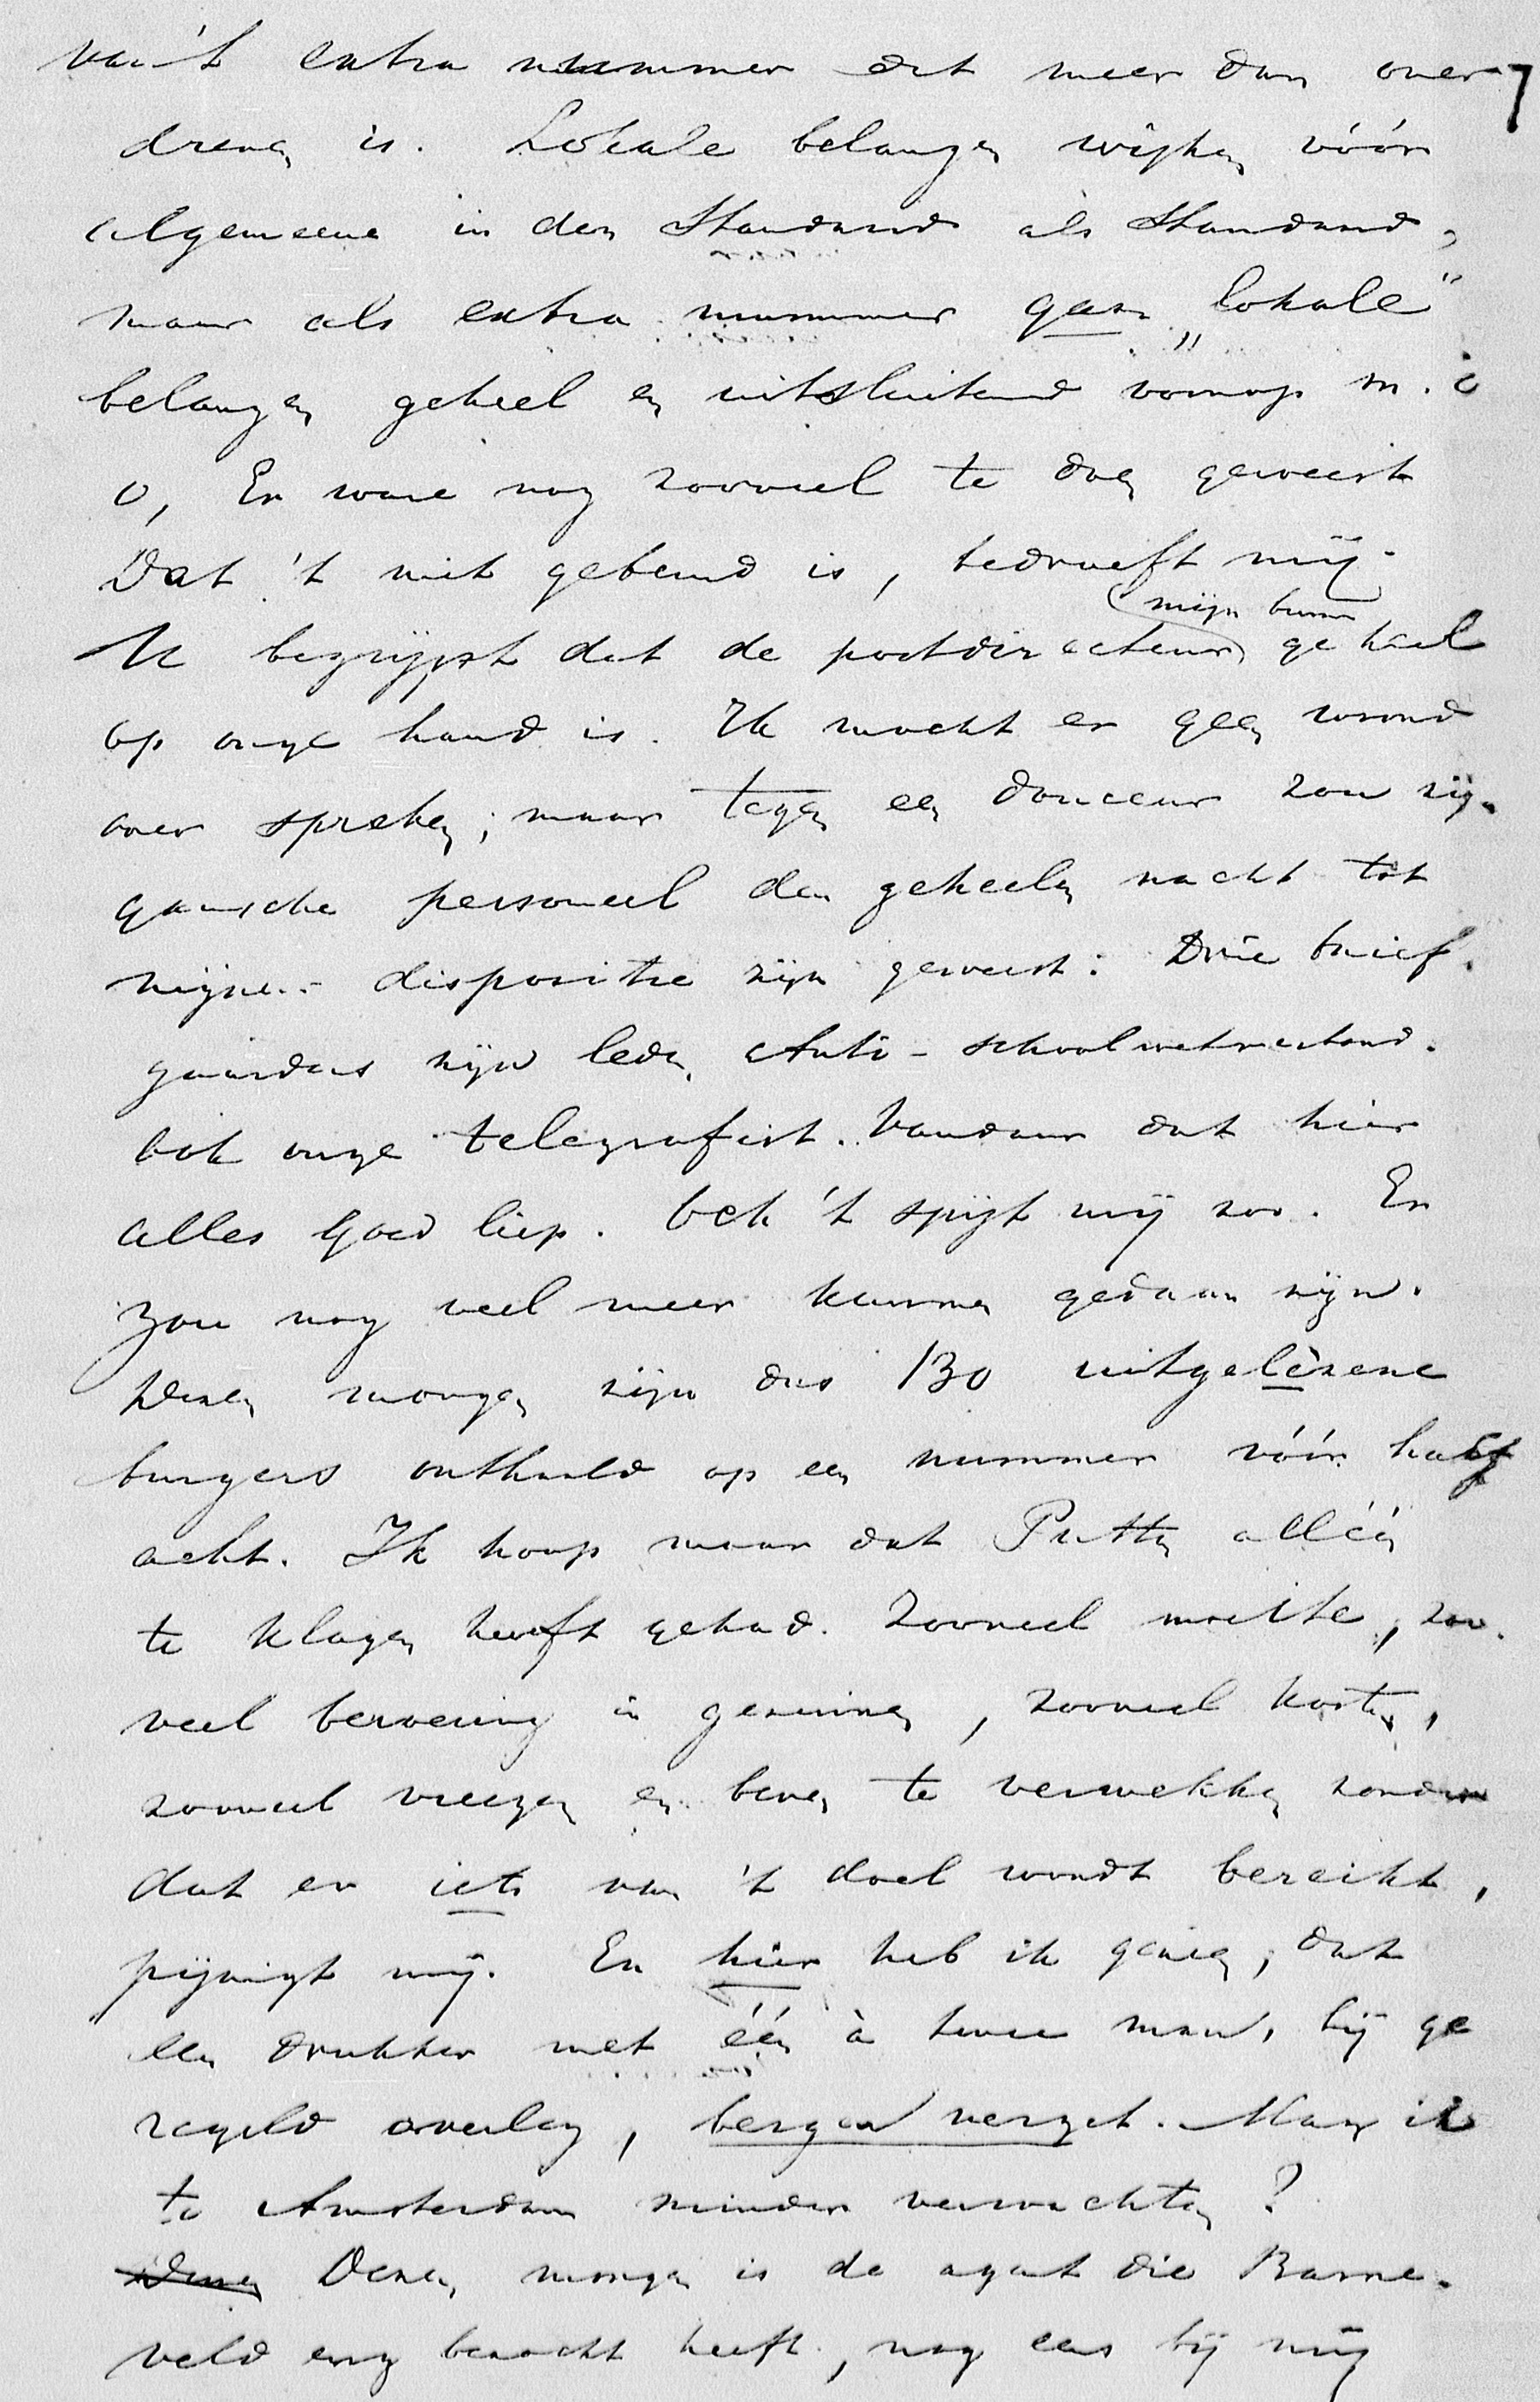 van 't extra nummer dit meer dan over-
dreven is. Lokale belangen wijken vóór
algemeene in den Standaard als Standaard,
maar als extra nummer gaan „lokale"
belangen geheel en uitsluitend voorop m. i
O, Er ware nog zooveel te doen geweest
Dat 't niet gebeurd is, bedroeft mij.
(mijn buur)
U begrijpt dat de postdirecteur geheel
op onze hand is. Ik mocht er geen woord
over spreken; maar tegen een douceur zou zijn
gansche personeel den geheelen nacht tot
mijner dispositie zijn geweest. Drie brief-
gaarders zijn leden Anti-schoolwetverbond.
Ook onze telegrafist. Vandaar dat hier
alles goed liep. Och 't spijt mij zoo. Er
zou nog veel meer kunnen gedaan zijn.
Dezen morgen zijn dus 130 uitgelèzene
burgers onthaald op een nummer vóór half
acht. Ik hoop maar dat Putten alléén
te klagen heeft gehad. Zooveel moeite, zoo-
veel beroering in gezinnen, zooveel kosten,
zooveel vreezen en beven te verwekken zonder
dat er iets van 't doel wordt bereikt,
pijnigt mij. En hier heb ik gezien, dat
een drukker met één à twee man, bij ge
regeld overleg, bergen verzet. Mag ik
te Amsterdam minder verwachten?
Dezen Dezen morgen is de agent die Barne-
veld enz bezocht heeft, nog eens bij mij